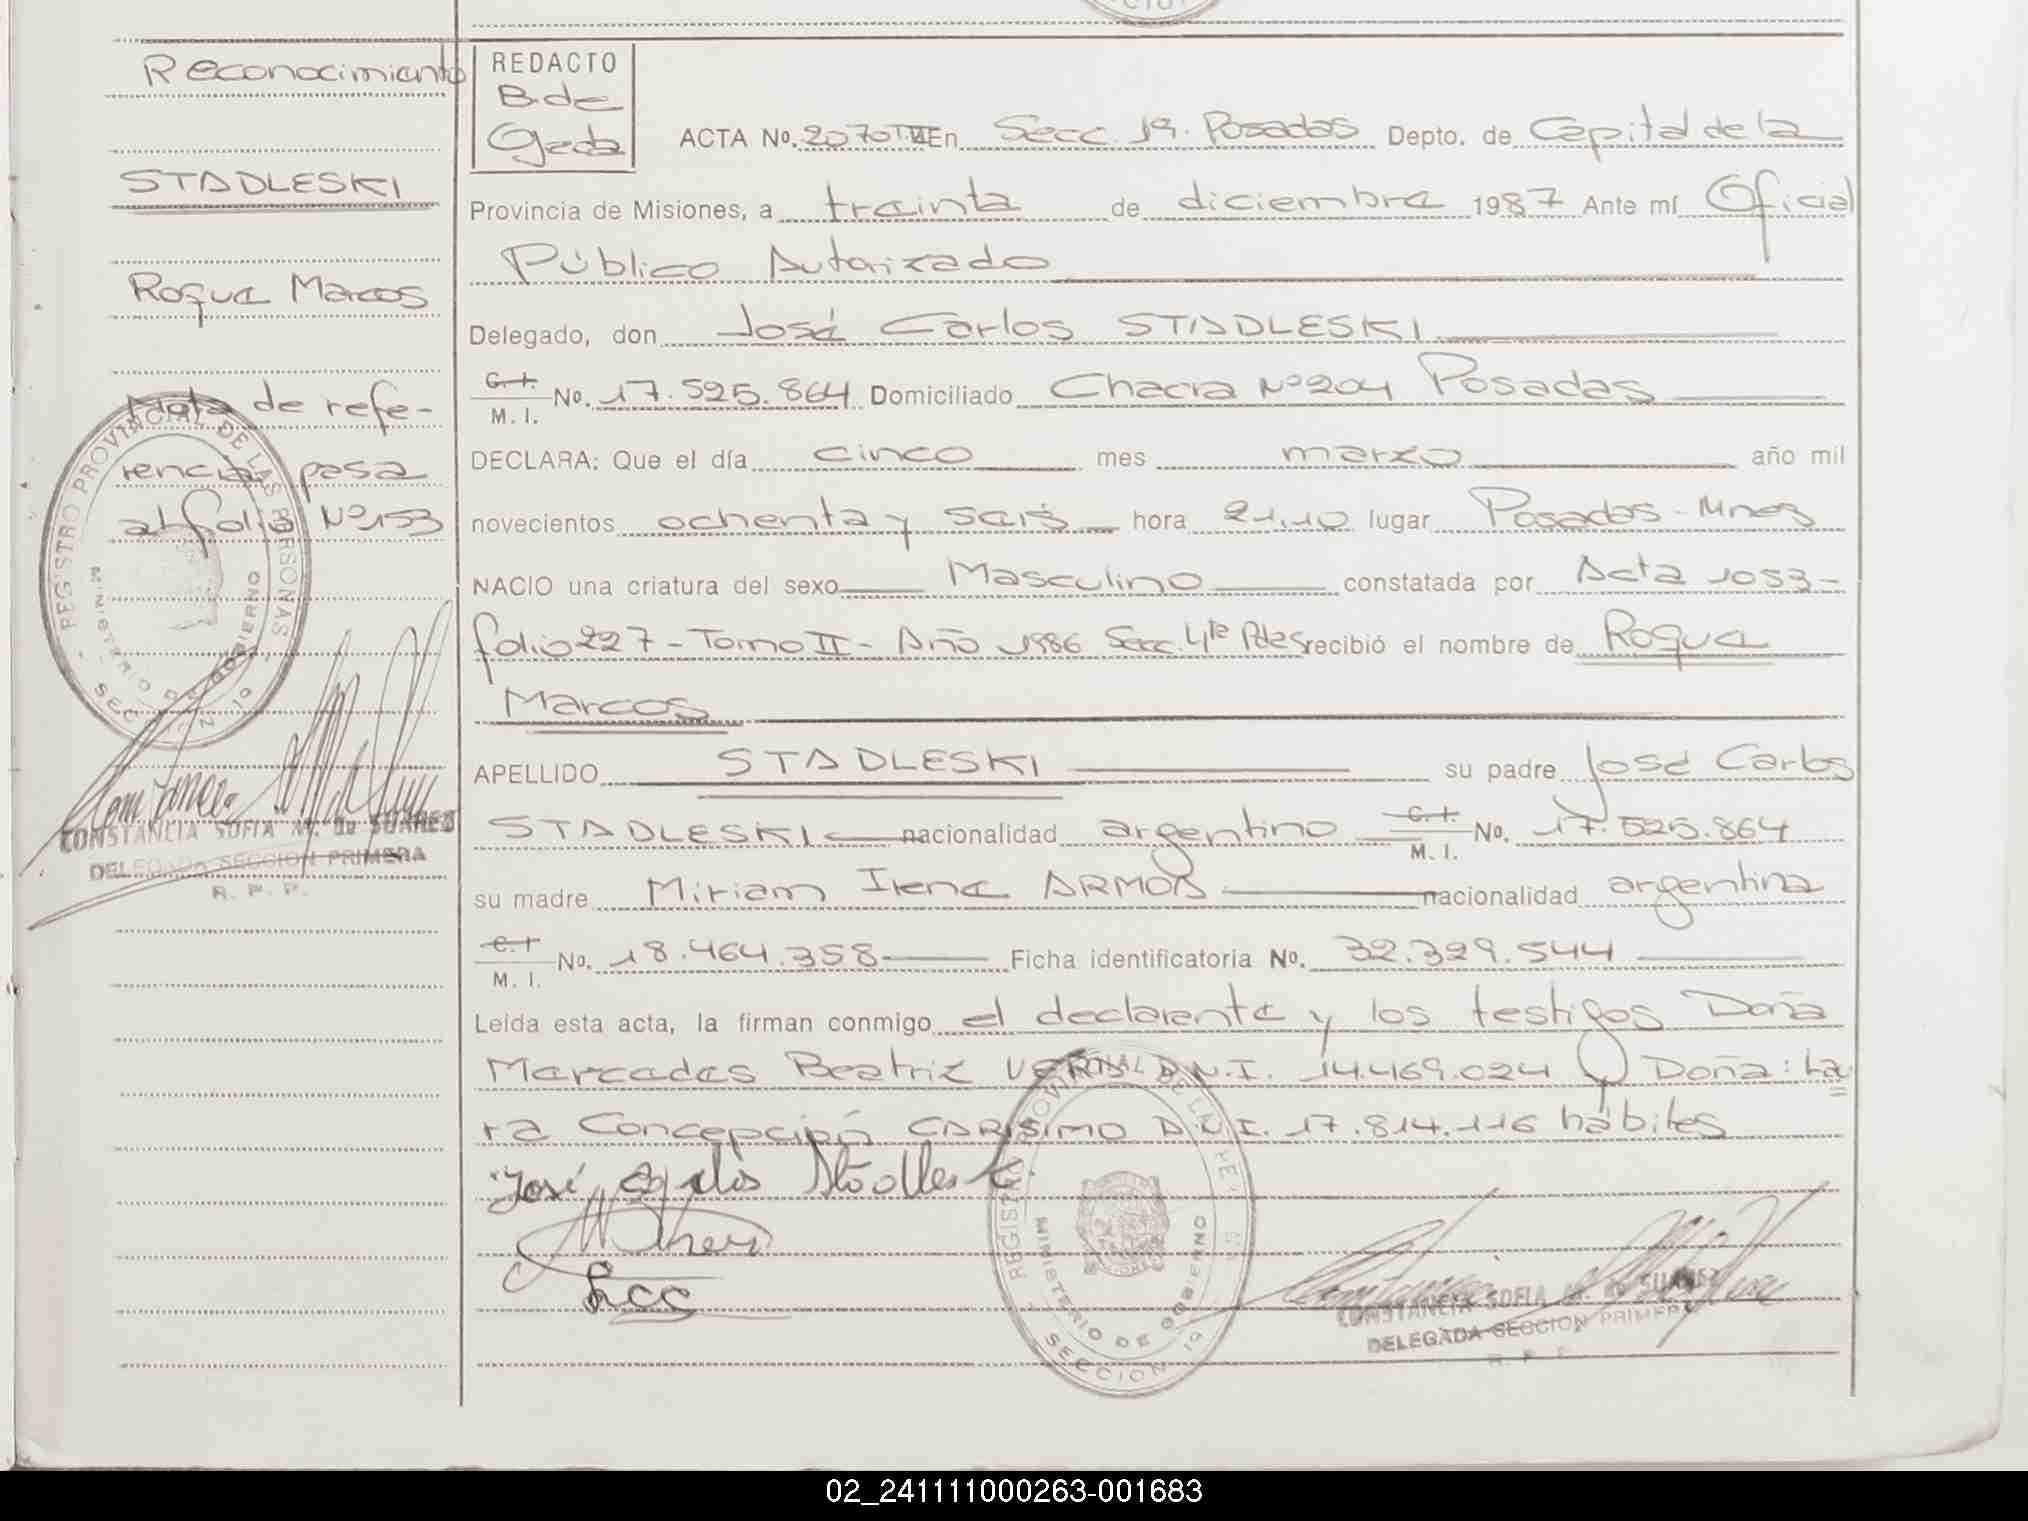 Reconocimiento
STADLESKI
Roque Marcos
Nota de refe-
rencia pasa
al folio Nº 153
REGISTRO PROVINCIAL DE LAS PERSONAS
MINISTERIO DE GOBIERNO
SECCION 1ª
CONSTANCIA SOFIA M. de SUAREZ
DELEGADA SECCION PRIMERA
R. P. P.
REDACTO
B. de
Geda
ACTA Nº. 2070 En Secc. 1ª. Posadas Depto. de Capital de la
Provincia de Misiones, a treinta de diciembre 1987 Ante mí Oficial
Público Autorizado
Delegado, don José Carlos STADLESKI
C. I.
M. I. No. 17.525.864 Domiciliado Chacra Nº 204 Posadas
DECLARA: Que el día cinco mes marzo año mil
novecientos ochenta y seis hora 21,10 lugar Posadas - Mnes
NACIO una criatura del sexo Masculino constatada por Acta 1053-
folio 227 - Tomo II - Año 1986 Secc. 4ta Pdas recibió el nombre de Roque
Marcos
APELLIDO STADLESKI su padre José Carlos
STADLESKI nacionalidad argentino C. I. M. I. No. 17.525.864
su madre Miriam Irene ARMOA nacionalidad argentina
C. I.
M. I. No. 18.464.358 Ficha identificatoria No. 32.329.544
Leída esta acta, la firman conmigo el declarante y los testigos Doña
Mercedes Beatriz D.N.I. 14.469.024 y Doña: La
ra Concepción CARISIMO D.N.I. 17.814.116 hábiles
José Carlos Stadleski
Lcc
REGISTRO PROVINCIAL DE LAS PERSONAS
MINISTERIO DE GOBIERNO
SECCION 1ª
CONSTANCIA SOFIA M. de SUAREZ
DELEGADA SECCION PRIMERA
R. P. P.
02_241111000263-001683